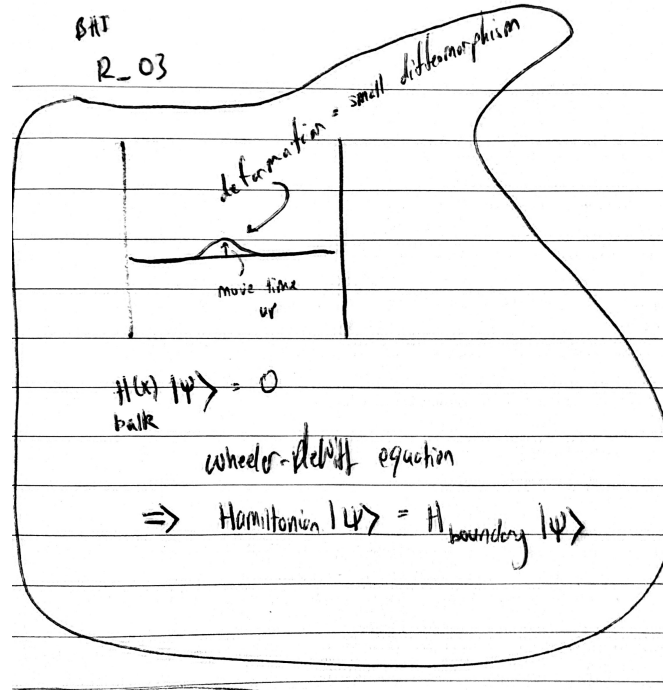 BHI
R_03
deformation = small diffeomorphism
move time
up
H(x) |Ψ> = 0
bulk
wheeler-DeWitt equation
⇒ Hamiltonian |Ψ> = H boundary |Ψ>